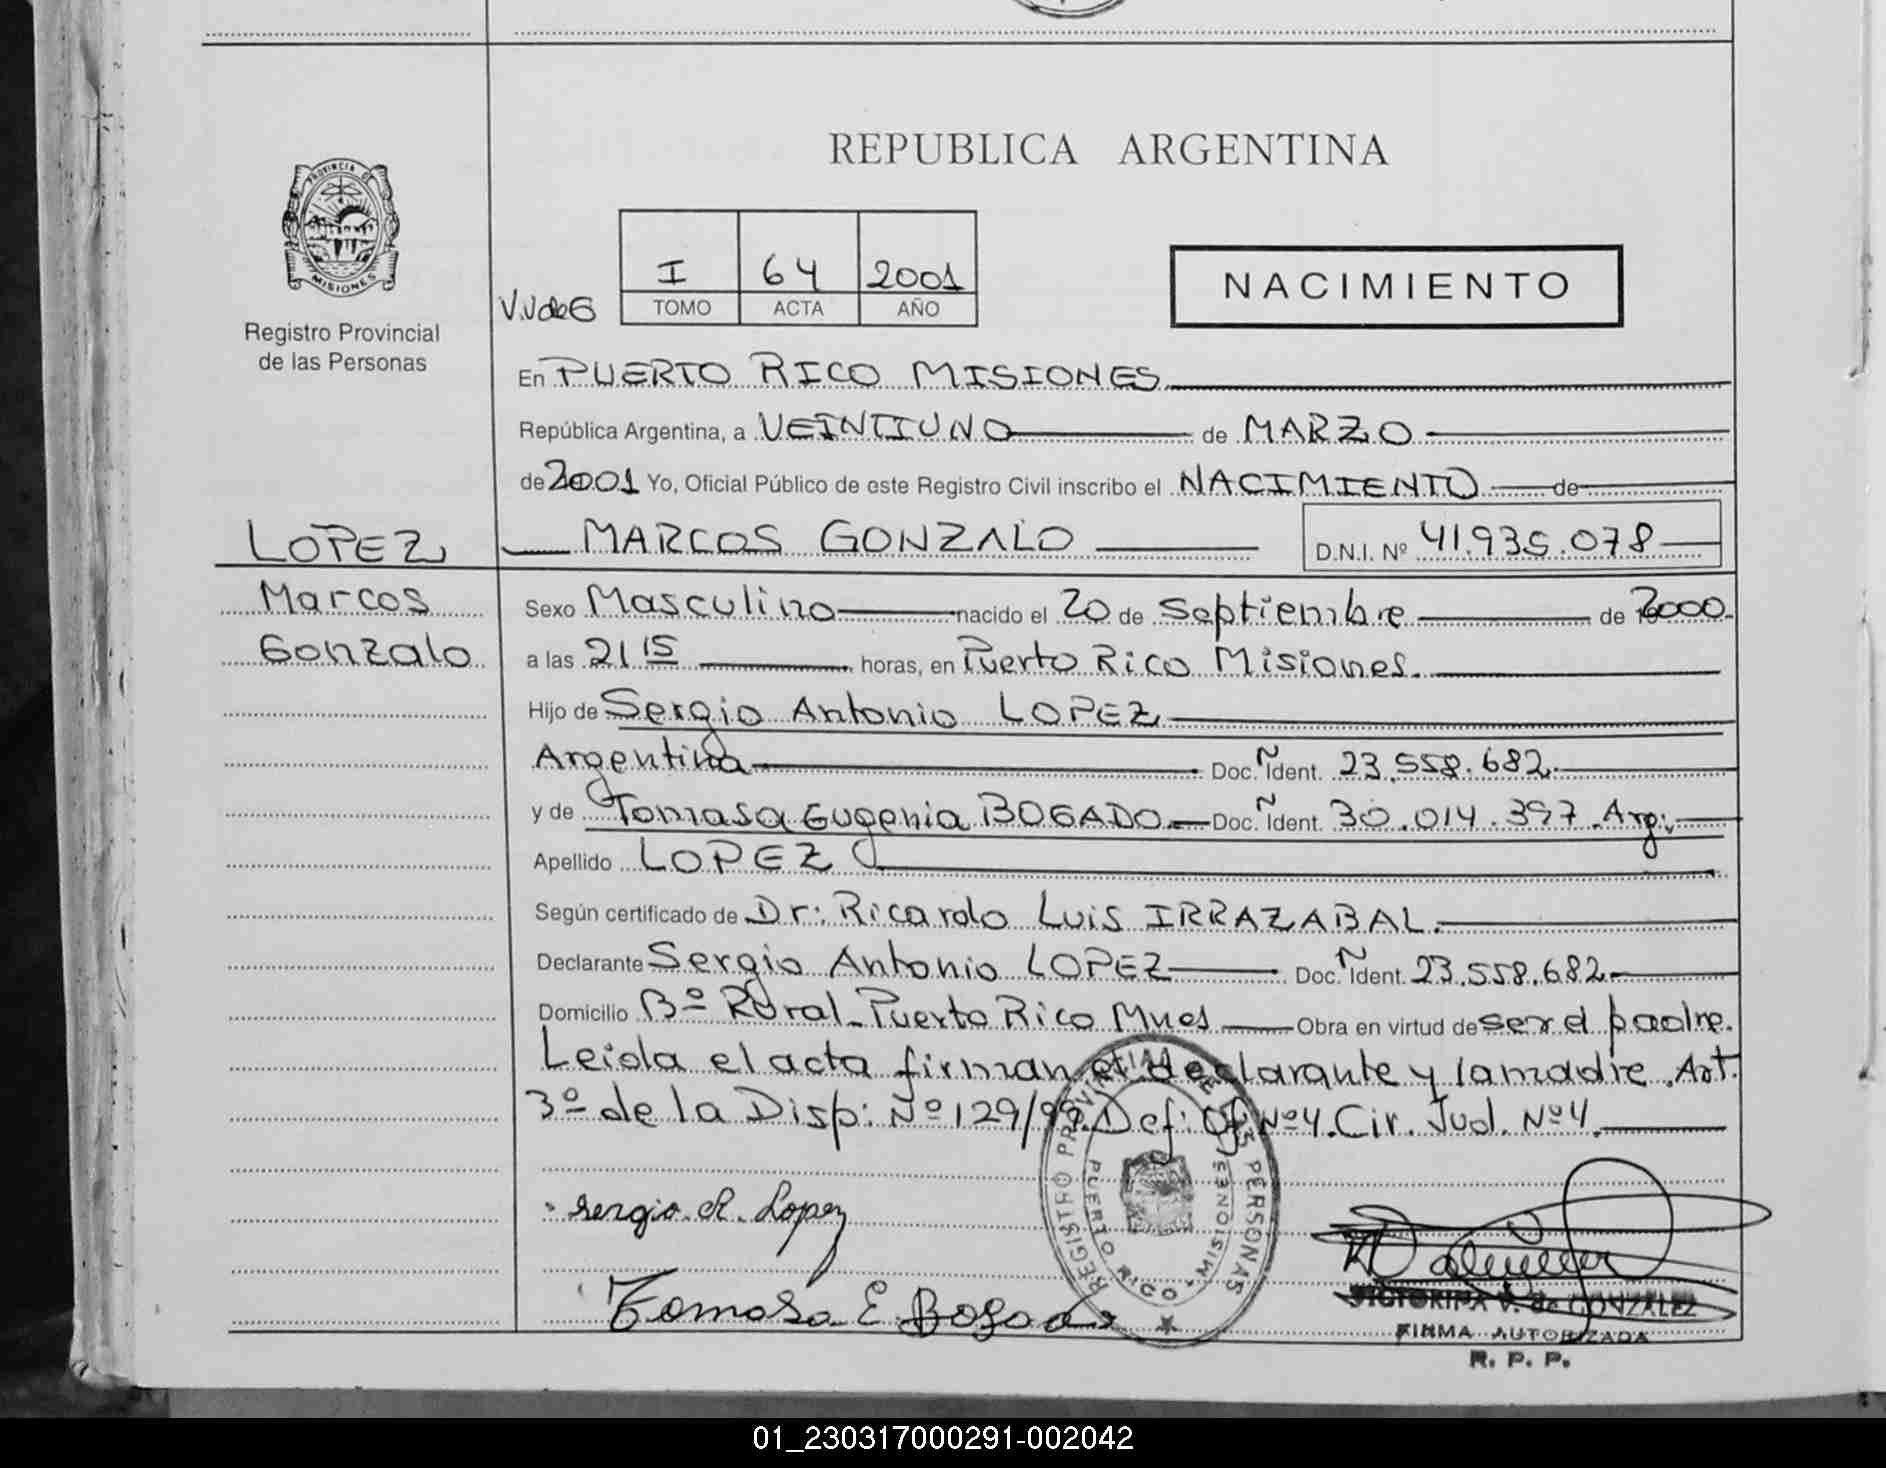 REPUBLICA ARGENTINA
PROVINCIA DE MISIONES
Registro Provincial
de las Personas
V.V de G
I 64 2001
TOMO ACTA AÑO
NACIMIENTO
En PUERTO RICO MISIONES
República Argentina, a VEINTIUNO de MARZO
de 2001 Yo, Oficial Público de este Registro Civil inscribo el NACIMIENTO de
LOPEZ MARCOS GONZALO D.N.I. Nº 41.935.078
Marcos Sexo Masculino nacido el 20 de Septiembre de 2000
Gonzalo a las 21 15 horas, en Puerto Rico Misiones.
Hijo de Sergio Antonio LOPEZ
Argentina Doc. Ident. 23.558.682.
y de Tomasa Eugenia BOGADO Doc. Ident. 30.014.397. Arg.
Apellido LOPEZ
Según certificado de Dr: Ricardo Luis IRRAZABAL.
Declarante Sergio Antonio LOPEZ Doc. Ident. 23.558.682
Domicilio Bº Rural Puerto Rico Mnes Obra en virtud de ser el padre.
Leida el acta firman el declarante y la madre. Art.
3º de la Disp: Nº 129/99. Def: Of. Nº 4. Cir. Jud. Nº 4.
REGISTRO PROVINCIAL DE LAS PERSONAS
PUERTO RICO - MISIONES
Sergio A. Lopez
Tomasa E Bogado
VICTORINA V. de GONZALEZ
FIRMA AUTORIZADA
R. P. P.
01_230317000291-002042